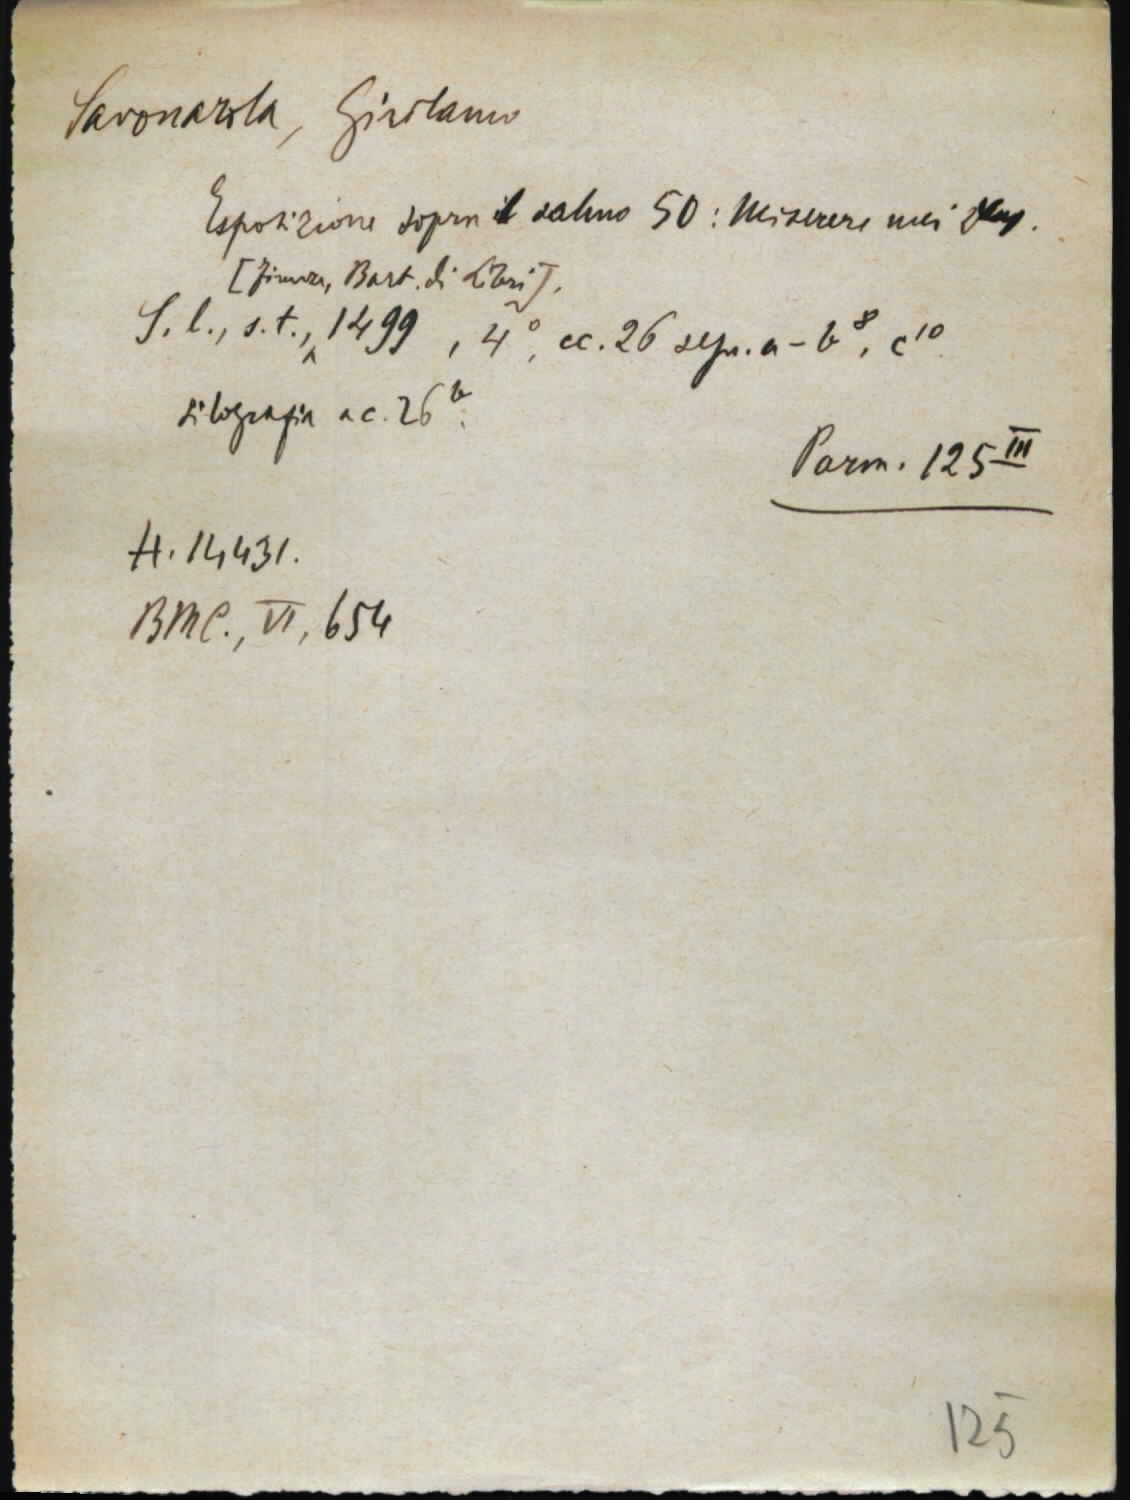 Savonarola, Girolamo
Esposizione sopra il salmo 50: Miserere mei Deus.
[Firenze, Bart. di Libri],
S. l., s. t., 1499, 4°, cc. 26 segn. a-b⁸, c¹⁰
silografia a c. 26ᵇ.
Parm. 125 III
H. 14431.
BMC., VI, 654
125